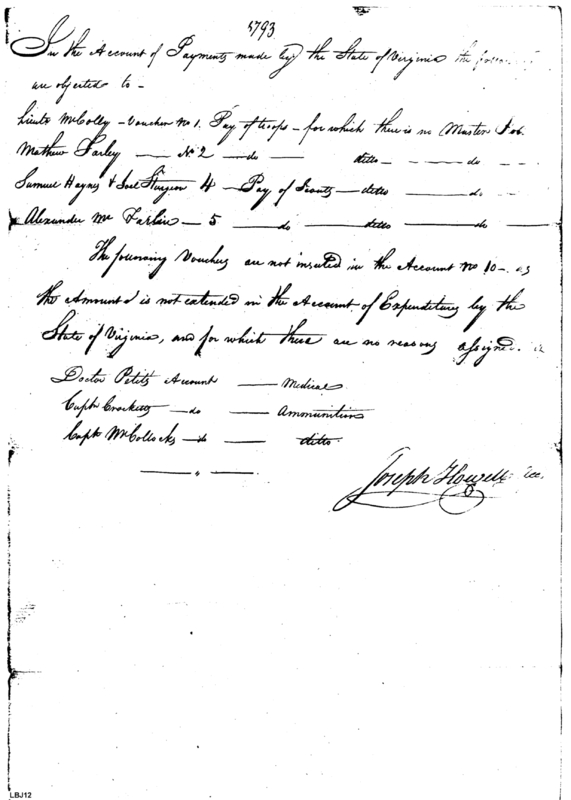 1793
In the Account of Payments made by the State of Virginia the
are objected to -
Lieut. McColly - Voucher No 1. Pay of troops - for which there is no Muster
Mathew Farley — No 2 — do — ditto — do —
Samuel Haynes & Joel Sturgeon 4 — Pay of Scouts — ditto — do —
Alexander Mc Farlin — 5 — do — ditto — do —
The following Vouchers are not inserted in the Account No 10 - as
the Amount is not extended in the Account of Expenditures by the
State of Virginia, and for which there are no reasons assigned.
Doctor Petits Account — Medical
Captn Crocketts — do — Ammunition
Captn McCollocks — do — ditto
Joseph Howell
LBJ12